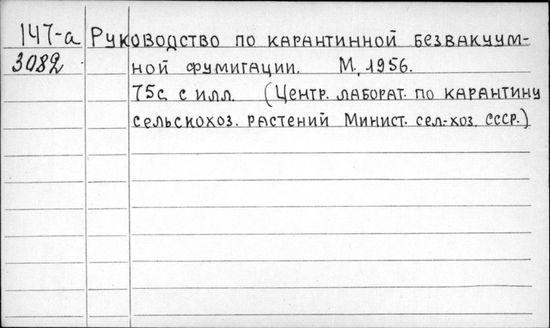 147-а Руководство по карантинной безвакуум-
3082 ной фумигации. М., 1956.
75с. с илл. (Центр. лаборат. по карантину
сельскохоз. растений Минист. сел.-хоз. СССР.)